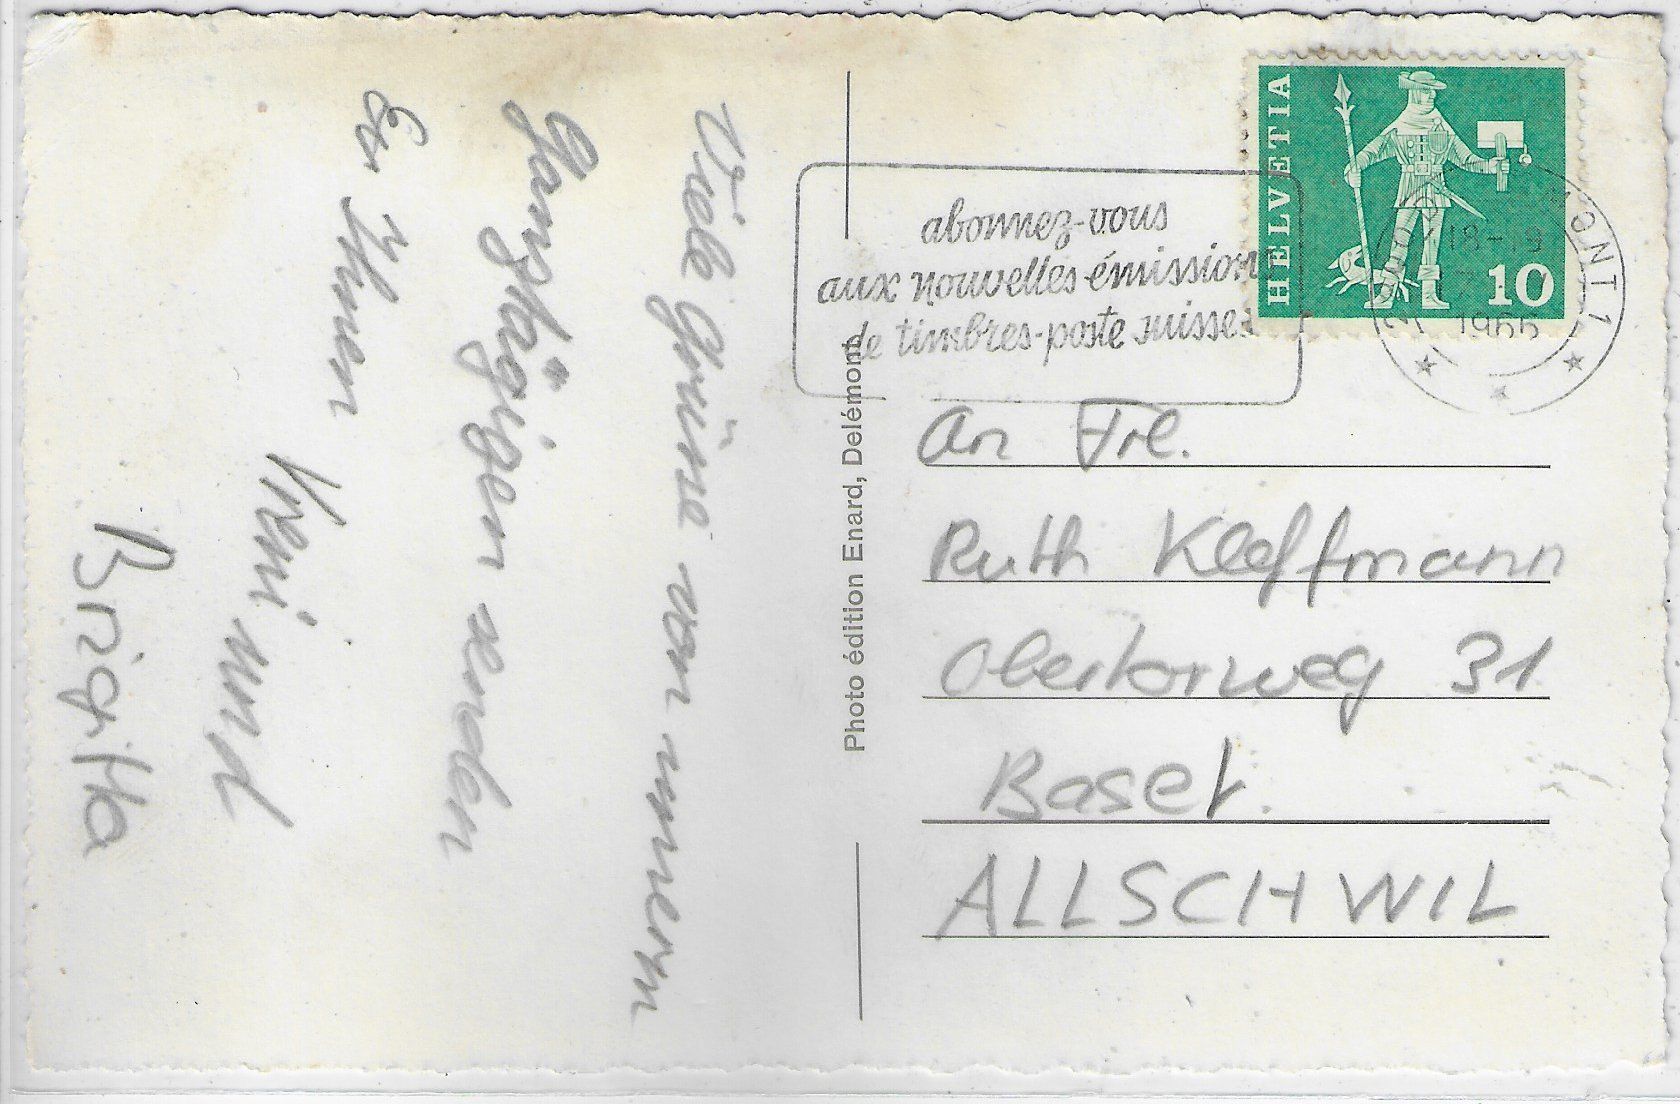 Viele Grüsse von unserm
Ganztägigen senden
Ihnen
Vreni und
Brigitta
Photo édition Enard, Delémont
abonnez-vous
aux nouvelles émissions
de timbres-poste suisses
HELVETIA
10
18-19
1966
ONT 1
An Frl.
Ruth Kleffmann
Obertorweg 31
Basel.
ALLSCHWIL